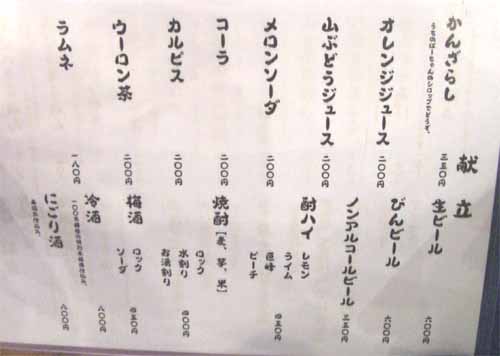 献立
かんざらし 三五〇円
うちのばーちゃんのシロップでどうぞ。
オレンジジュース 二〇〇円
山ぶどうジュース 二〇〇円
メロンソーダ 二〇〇円
コーラ 二〇〇円
カルピス 二〇〇円
ウーロン茶 二〇〇円
ラムネ 一八〇円
生ビール 六〇〇円
びんビール 六〇〇円
ノンアルコールビール 三五〇円
酎ハイ 四五〇円
レモン
ライム
巨峰
ピーチ
焼酎【麦、芋、米】 四〇〇円
ロック
水割り
お湯割り
梅酒 四五〇円
ロック
ソーダ
冷酒 八〇〇円
にごり酒 八〇〇円